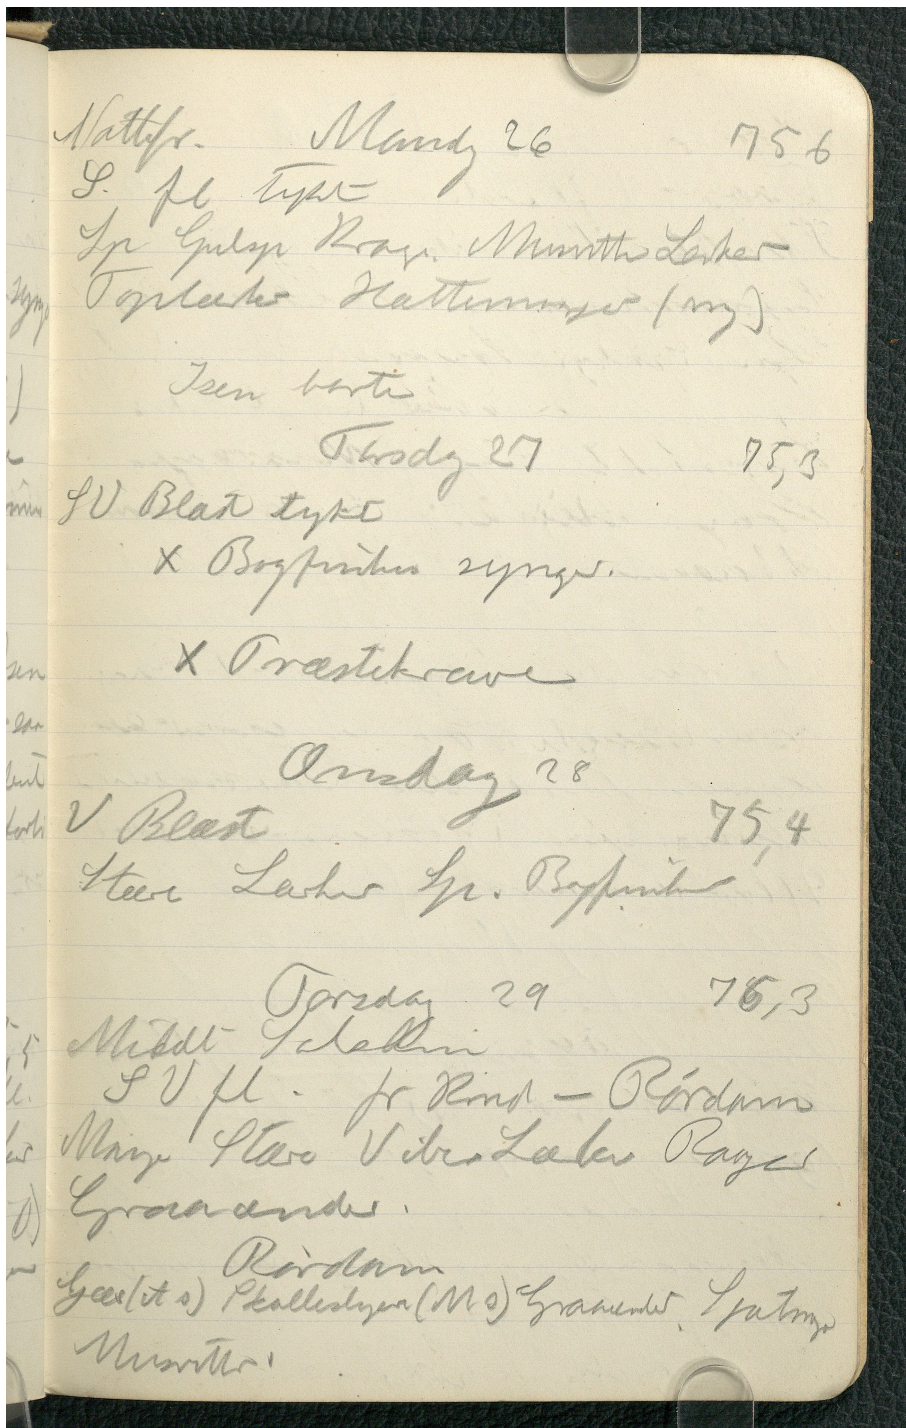 Nattefr. Mandg 26 75 6
S. fl tykt
Sp Gulsp Krage. Musvitter Lærker
Toplærke (ny)
Isen borte
Tirsdg 27 75,3
SV Blæst tykt
X Bogfinken synger.
X Træstikrave
Onsdag 28
V Blæst 75,4
Stære Lærker Sp. Bogfinker
Torsdag 29 76,3
Middt
SV fl. fr Rind – Rørdam
Mange Stære Viber Lærker Raager
Graaænder.
Rørdam
Graaænder. Spætmejse
Musvitter.